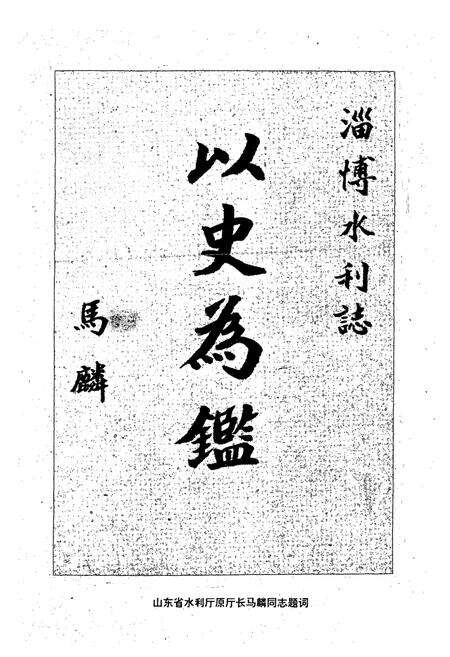 淄博水利誌
以史為鑑
馬麟
山东省水利厅原厅长马麟同志题词